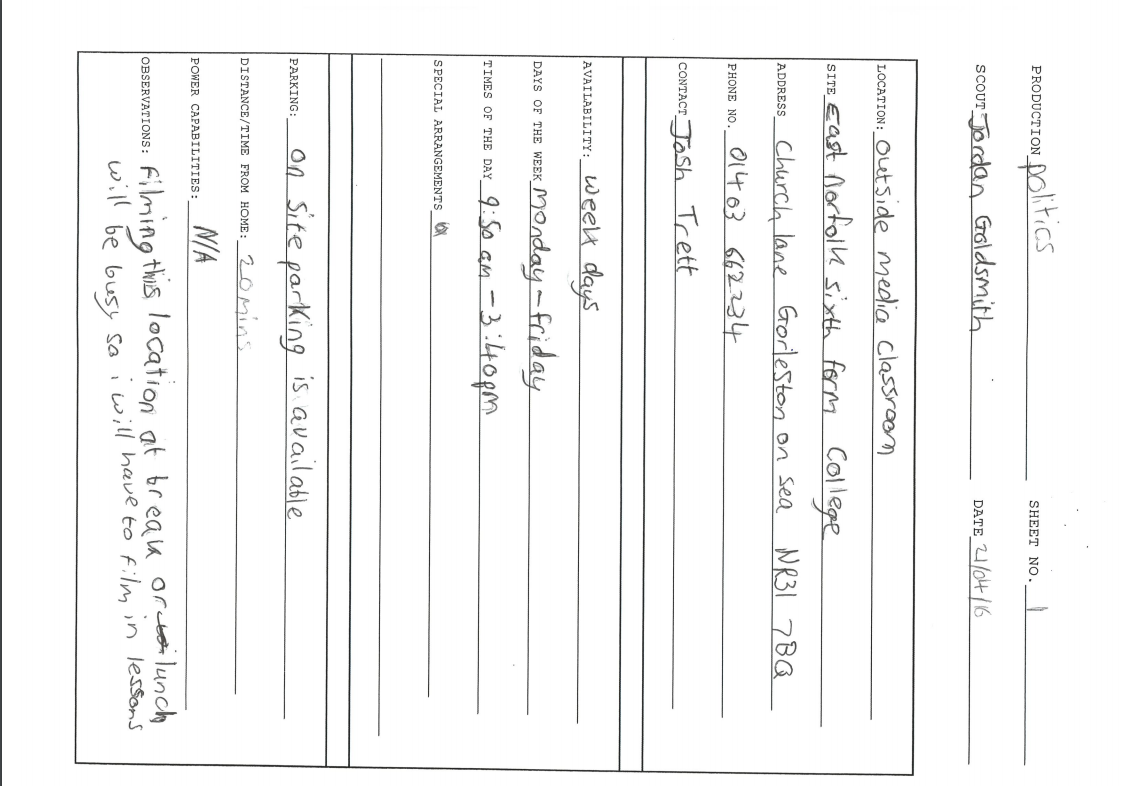 PRODUCTION politics SHEET NO. 1
SCOUT Jordan Goldsmith DATE 21/04/16
LOCATION: outside media classroom
SITE East Norfolk Sixth form College
ADDRESS Church lane Gorleston on sea NR31 7BQ
PHONE NO. 01403 662234
CONTACT Josh Trett
AVAILABILITY: week days
DAYS OF THE WEEK monday - friday
TIMES OF THE DAY 9:50 am - 3:40pm
SPECIAL ARRANGEMENTS
PARKING: on site parking is available
DISTANCE/TIME FROM HOME: 20 mins
POWER CAPABILITIES: N/A
OBSERVATIONS: filming this location at break or lunch
will be busy so i will have to film in lessons